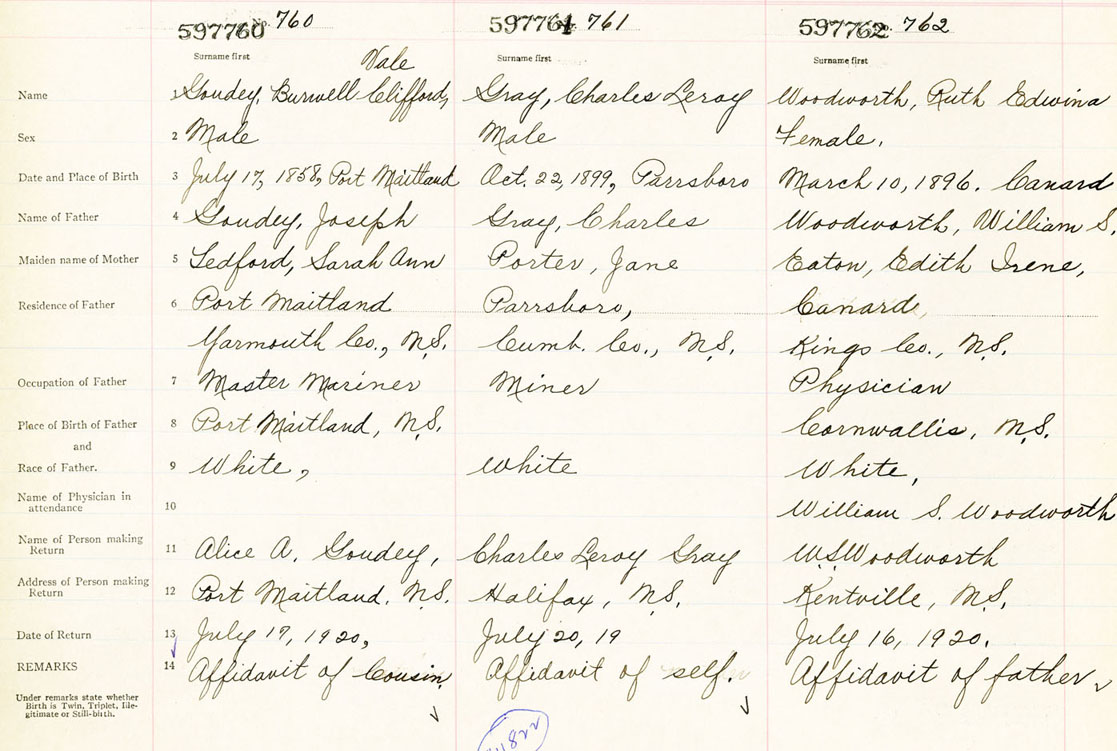 597760 No. 760 597761 No. 761 597762 No. 762
Surname first Surname first Surname first
Vale
Name 1 Goudey, Burwell Clifford, Gray, Charles Leroy Woodworth, Ruth Edwina
Sex 2 Male Male Female.
Date and Place of Birth 3 July 17, 1858, Port Maitland Oct. 22, 1899, Parrsboro March 10, 1896. Canard
Name of Father 4 Goudey, Joseph Gray, Charles Woodworth, William S.
Maiden name of Mother 5 Ledford, Sarah Ann Porter, Jane Eaton, Edith Irene,
Residence of Father 6 Port Maitland Parrsboro, Canard,
Yarmouth Co., N.S. Cumb. Co., N.S. Kings Co., N.S.
Occupation of Father 7 Master Mariner Miner Physician
Place of Birth of Father 8 Port Maitland, N.S. Cornwallis, N.S.
and
Race of Father. 9 White, White White,
Name of Physician in
attendance 10 William S. Woodworth
Name of Person making
Return 11 Alice A. Goudey, Charles Leroy Gray W.S. Woodworth
Address of Person making
Return 12 Port Maitland. N.S. Halifax, N.S. Kentville, N.S.
Date of Return 13 July 17, 1920, July 20, 19 July 16, 1920.
REMARKS 14 Affidavit of Cousin. Affidavit of self. Affidavit of father
Under remarks state whether
Birth is Twin, Triplet, Ille-
gitimate or Still-birth.